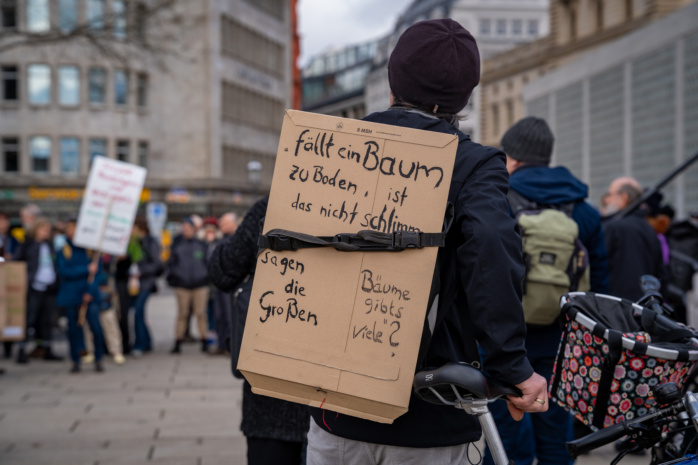 „fällt ein Baum
zu Boden, ist
das nicht schlimm
sagen
die
Großen
Bäume
gibts
viele"?